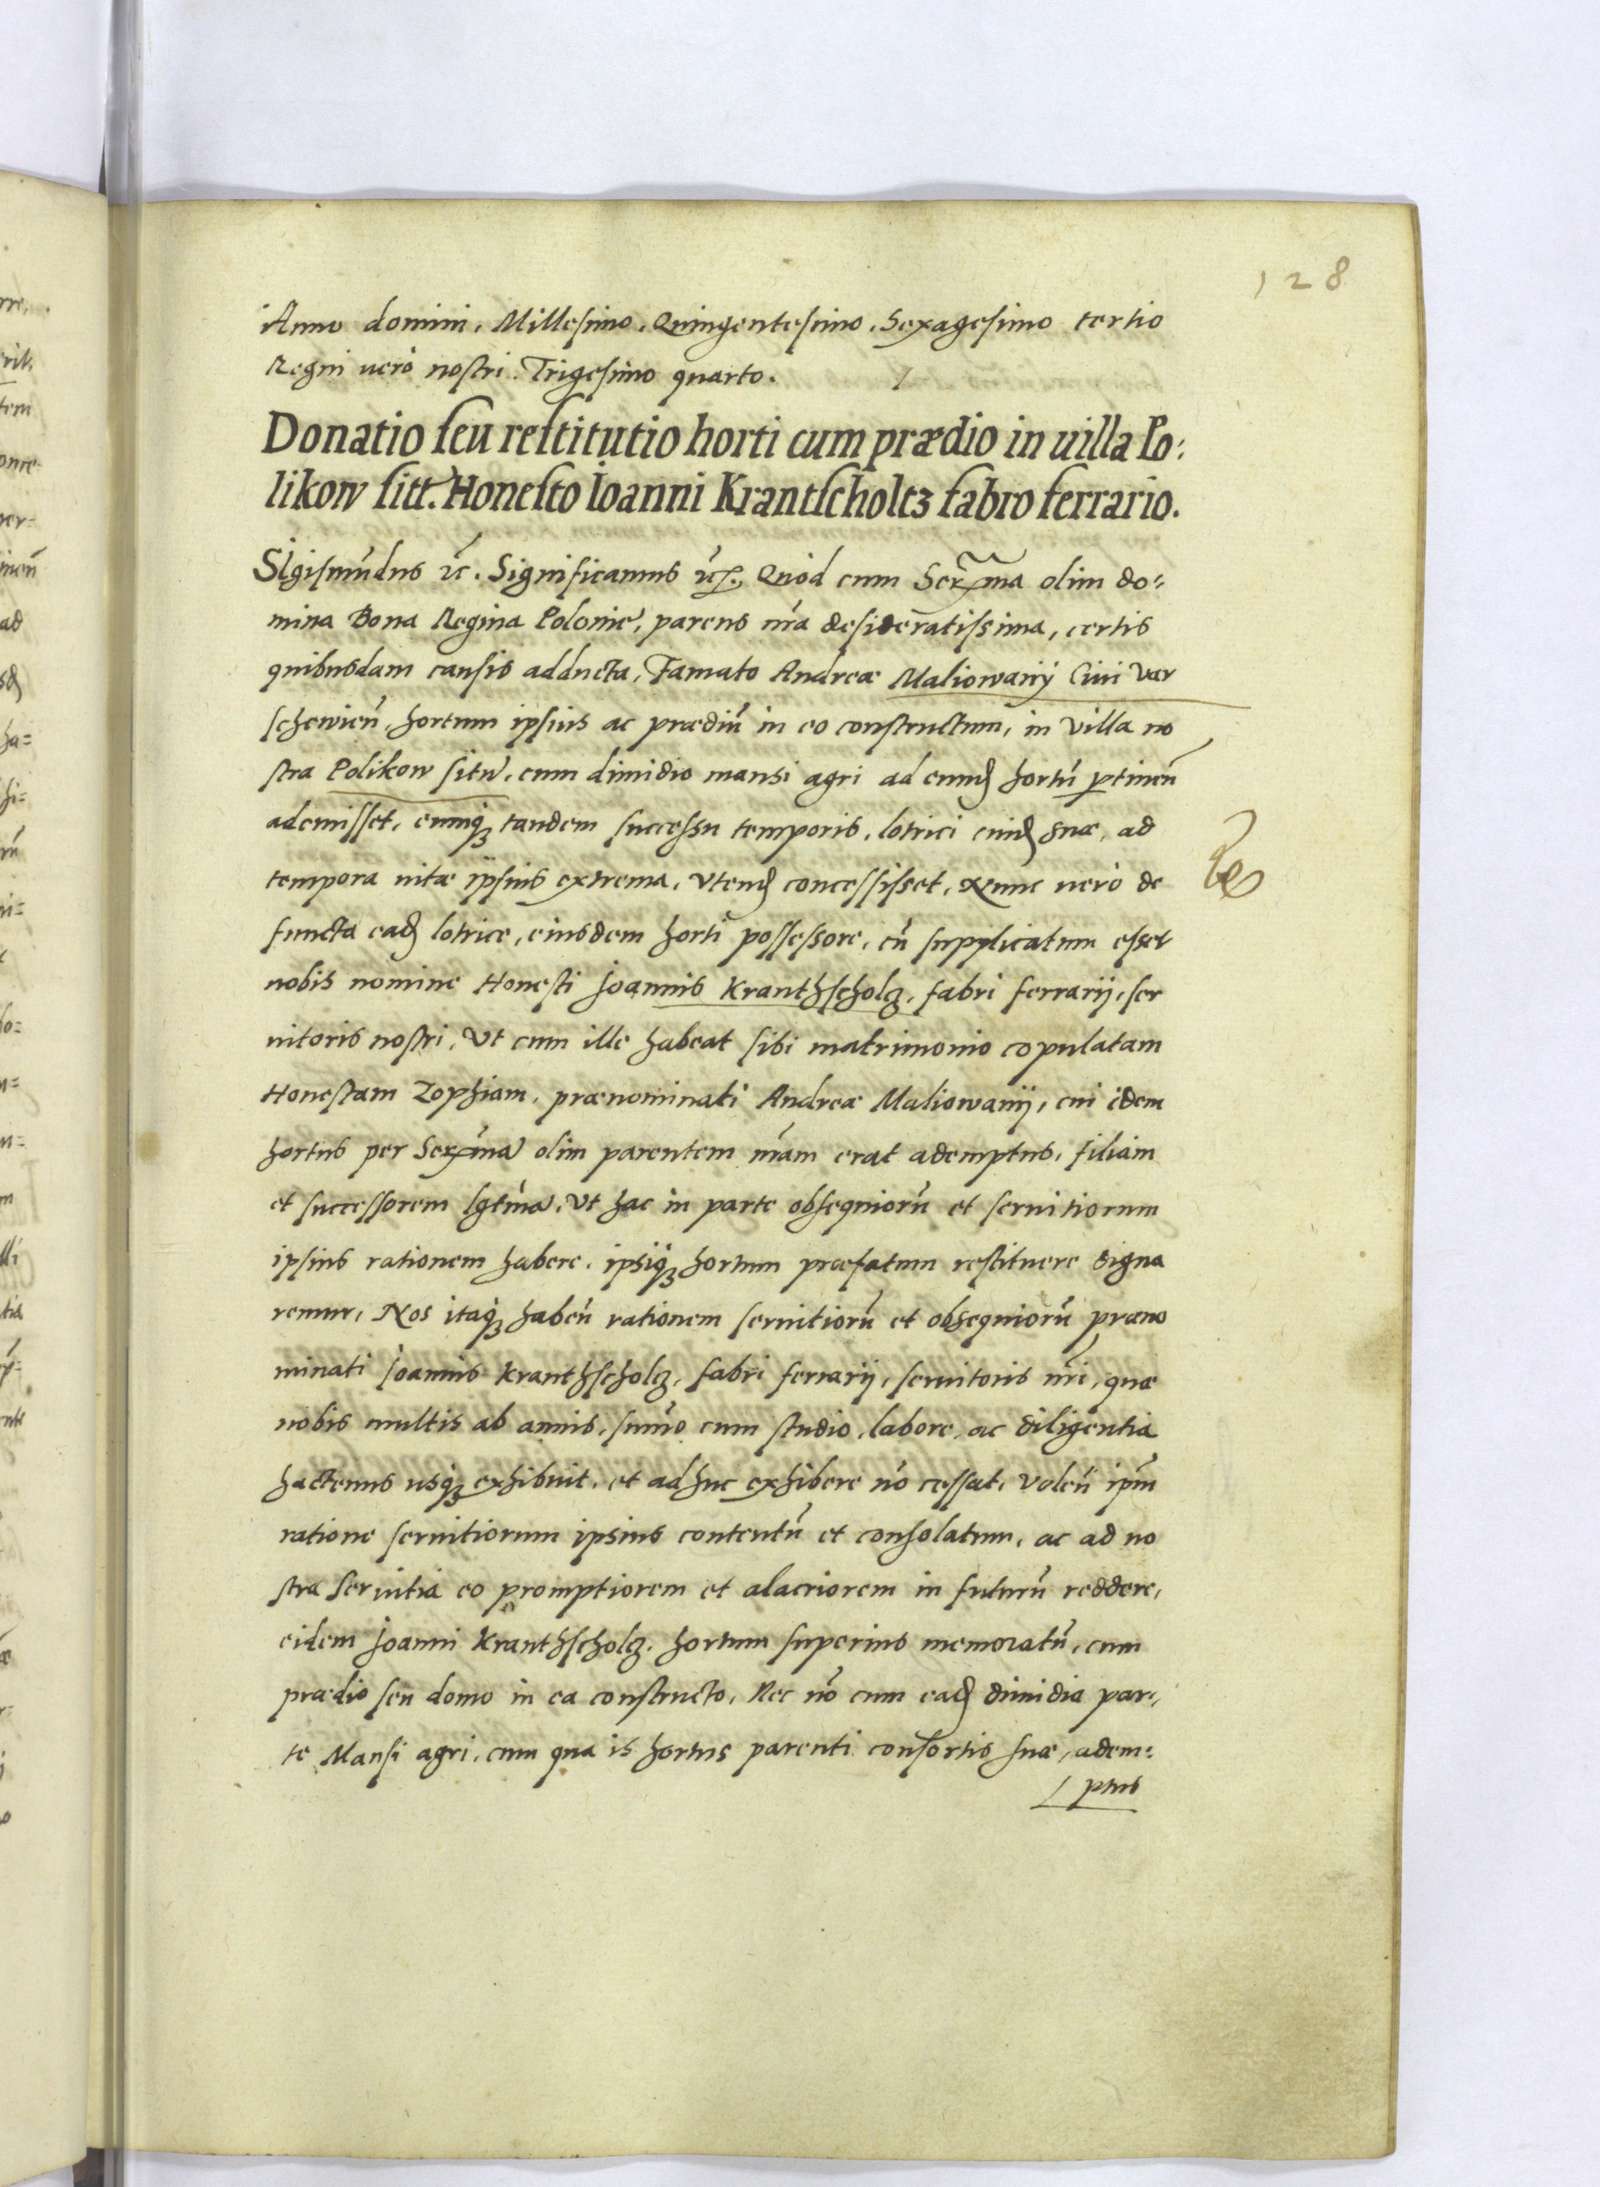 128
Anno domini, Millesimo, Quingentesimo, Sexagesimo tertio
Regni uerò nostri Trigesimo quarto.
Donatio seu restitutio horti cum prædio in uilla Po:
likow sitt. Honesto Ioanni Krantscholcz fabro ferrario.
Sigismũdus ῦc. Significamus ῦc. Quòd cum Serma olim do:
mina Bona Regina Polonię, parens nr̃a desideratissima, certis
quibusdam causis adducta, Famato Andreæ Maliowanÿ Ciui Var
schewieñ, hortum ipsius ac prædiũ in eo constructum, in Villa no
stra Polikow sitũ, cum dimidio mansi agri ad eund hortũ ptineñ
ademisset, eumq; tandem successu temporis, lotrici cuid suæ, ad
tempora uitæ ipsius extrema, Vtend concessisset, Nunc uerò de
functa ead lotrice, eiusdem horti possessore, cũ supplicatum esset
nobis nomine Honesti Joannis Kranthscholcz, fabri ferrarij, ser
uitoris nostri, Vt cum ille habeat sibi matrimonio copulatam
Honestam Zophiam, prænominati Andreæ Maliowanij, cui idem
hortus per Sermã olim parentem nr̃am erat ademptus, filiam
et successorem lgtimã, Vt hac in parte obsequiorũ et seruitiorum
ipsius rationem habere, ipsiq; hortum præfatum restituere digna
remur, Nos itaq; habeñ rationem seruitiorũ et obsequiorũ præno
minati Joannis Kranthscholcz, fabri ferrarij, seruitoris nr̃i, quæ
nobis multis ab annis, sum̃o cum studio, labore, ac diligentia
hactenus usq; exhibuit, et adhuc exhibere nõ cessat, Voleñ ipm̃
ratione seruitiorum ipsius contentũ et consolatum, ac ad no
stra seruitia eo promptiorem et alacriorem in futurũ reddere,
eidem Joanni Kranthscholcz, hortum superius memoratũ, cum
prædio seu domo in ea constructo, Nec nõ cum ead dimidia par,
te Mansi agri, cum qua is hortus parenti consortis suæ, adem:
ptus